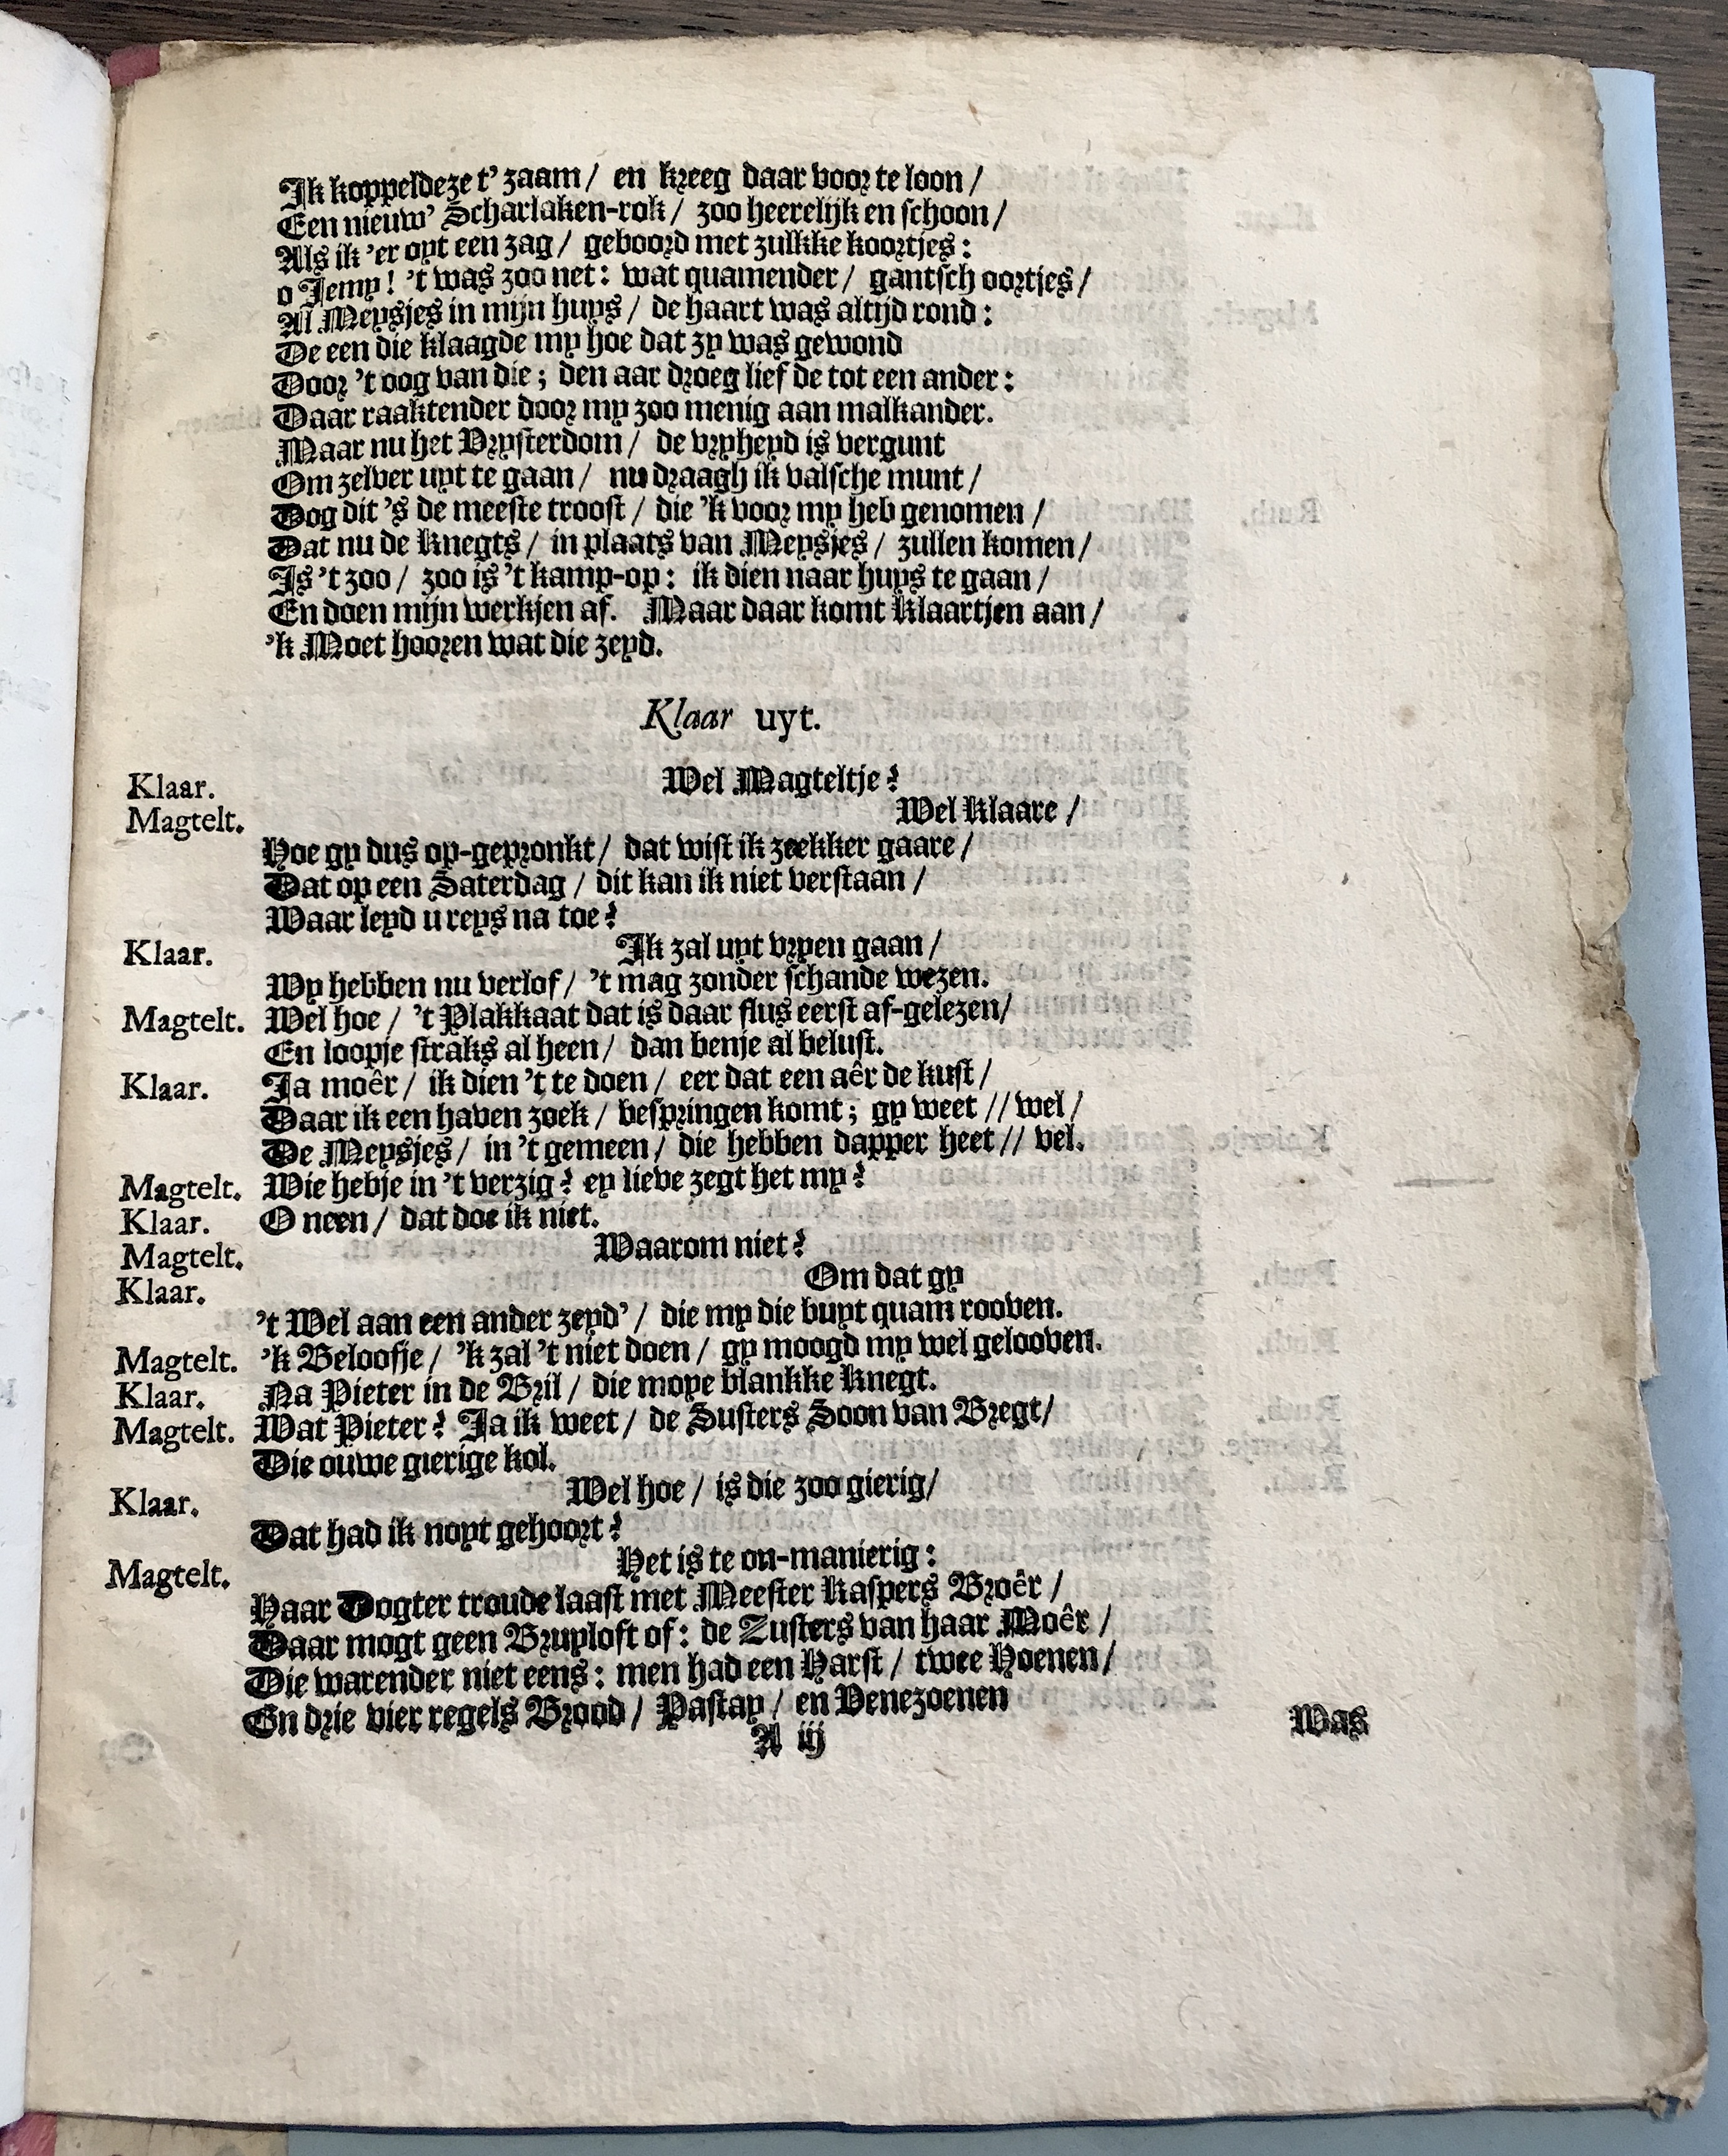 Ik koppeldeze t' zaam / en kreeg daar voor te loon /
Een nieuw' Scharlaken-rok / zoo heerelijk en schoon /
Als ik 'er oyt een zag / geboord met zulkke koortjes :
o Jemy ! 't was zoo net : wat quamender / gantsch oortjes /
Al Meysjes in mijn huys / de haart was altijd rond :
De een die klaagde my hoe dat zy was gewond
Door 't oog van die ; den aar droeg lief de tot een ander :
Daar raaktender door my zoo menig aan malkander.
Maar nu het Vrysterdom / de vryheyd is vergunt
Om zelver uyt te gaan / nu draagh ik valsche munt /
Dog dit 's de meeste troost / die 'k voor my heb genomen /
Dat nu de Knegts / in plaats van Meysjes / zullen komen /
Is 't zoo / zoo is 't kamp-op : ik dien naar huys te gaan /
En doen mijn werkjen af. Maar daar komt Klaartjen aan /
'k Moet hooren wat die zeyd.
Klaar uyt.
Klaar. Wel Magteltje ?
Magtelt. Wel Klaare /
Hoe gy dus op-gepronkt / dat wist ik zeekker gaare /
Dat op een Saterdag / dit kan ik niet verstaan /
Waar leyd u reys na toe ?
Klaar. Ik zal uyt vryen gaan /
Wy hebben nu verlof / 't mag zonder schande wezen.
Magtelt. Wel hoe / 't Plakkaat dat is daar flus eerst af-gelezen /
En loopje straks al heen / dan benje al belust.
Klaar. Ja moêr / ik dien 't te doen / eer dat een aêr de kust /
Daar ik een haven zoek / bespringen komt ; gy weet // wel /
De Meysjes / in 't gemeen / die hebben dapper heet // vel.
Magtelt. Wie hebje in 't verzig ? ey lieve zegt het my ?
Klaar. O neen / dat doe ik niet.
Magtelt. Waarom niet ?
Klaar. Om dat gy
't Wel aan een ander zeyd' / die my die buyt quam rooven.
Magtelt. 'k Beloofje / 'k zal 't niet doen / gy moogd my wel gelooven.
Klaar. Na Pieter in de Bril / die moye blankke Knegt.
Magtelt. Wat Pieter ? Ja ik weet / de Susters Soon van Bregt /
Die ouwe gierige kol.
Klaar. Wel hoe / is die zoo gierig /
Dat had ik noyt gehoort ?
Magtelt. Het is te on-manierig :
Haar Dogter troude laast met Meester Kaspers Broêr /
Daar mogt geen Bruyloft of : de Zusters van haar Moêr /
Die warender niet eens : men had een Harst / twee Hoenen /
En drie vier regels Brood / Pastay / en Venezoenen
A iij
Was